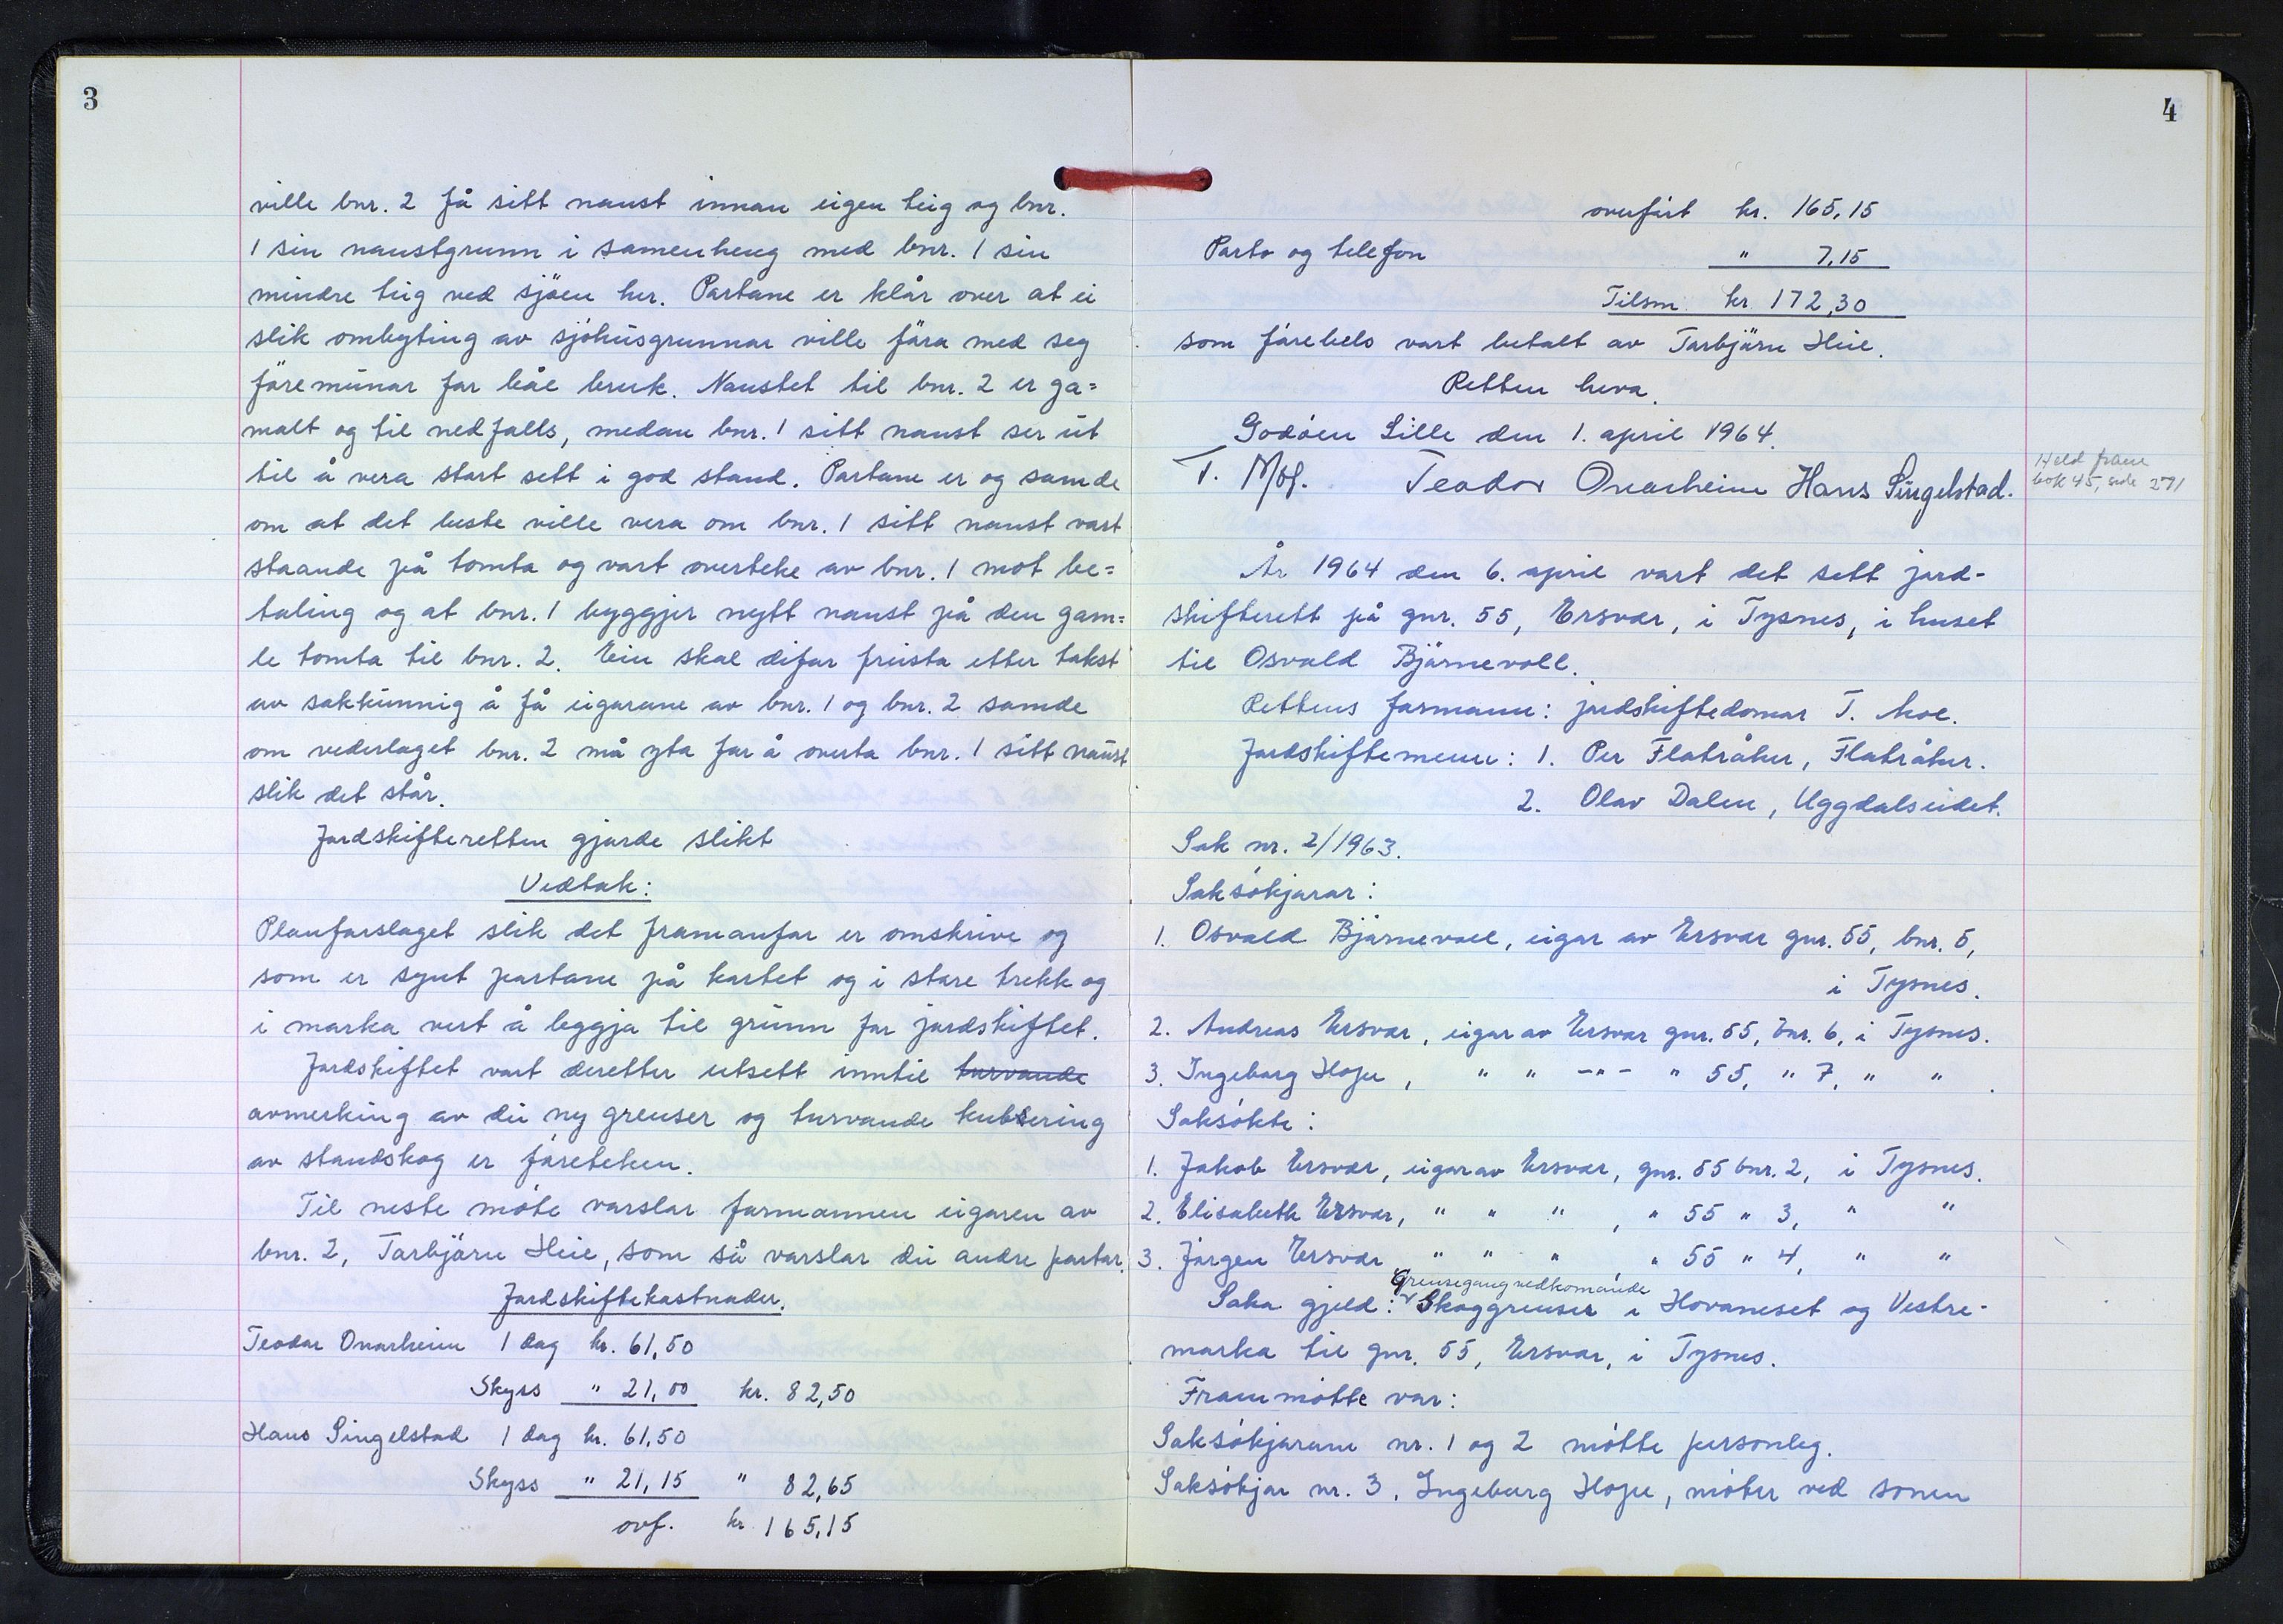 3
ville bnr. 2 få sitt naust innan eigen teig og bnr.
1 sin naustgrunn i samenheng med bnr. 1 sin
mindre teig ved sjøen her. Partane er klår over at ei
slik ombyting av sjøhusgrunnar ville føra med seg
føremunar for båe bruk. Naustet til bnr. 2 er ga=
malt og til nedfalls, medan bnr. 1 sitt naust ser ut
til å vera stort sett i god stand. Partane er og samde
om at det beste ville vera om bnr. 1 sitt naust vart
staande på tomta og vart overteke av bnr. 1 mot be=
taling og at bnr. 1 byggjer nytt naust på den gam=
le tomta til bnr. 2. Ein skal difor freista etter takst
av sakkunnig å få eigarane av bnr. 1 og bnr. 2 samde
om vederlaget bnr. 2 må yta for å overta bnr. 1 sitt naust
slik det står.
Jordskifteretten gjorde slikt
Vedtak:
Planforslaget slik det framanfor er omskrive og
som er synt partane på kartet og i store trekk og
i marka vert å leggja til grunn for jordskiftet.
Jordskiftet vart deretter utsett inntil turvande
avmerking av dei ny grenser og turvande kubering
av standskog er føreteken.
Til neste møte varslar formannen eigaren av
bnr. 2, Torbjørn Heie, som så varslar dei andre partar.
Jordskiftekostnader.
Teodor Onarheim 1 dag kr. 61,50
Skyss " 21,00 kr. 82,50
Hans Singelstad 1 dag kr. 61,50
Skyss " 21,15 " 82,65
ovf. kr 165,15
4
overført kr. 165,15
Porto og telefon " 7,15
Tilsm kr. 172,30
som førebels vart betalt av Torbjørn Heie.
Retten heva.
Godøen Lille den 1. april 1964.
T. Moe. Teodor Onarheim Hans Singelstad.
Held fram
bok 45, side 271
År 1964 den 6. april vart det sett jord-
skifterett på gnr. 55, Ersvær, i Tysnes, i huset
til Osvald Bjørnevoll.
Rettens formann: jordskiftedomar T. Moe.
Jordskiftemenn: 1. Per Flatråker, Flatråker.
2. Olav Dalen, Uggdalseidet.
Sak nr. 2/1963.
Saksøkjarar:
1. Osvald Bjørnevoll, eigar av Ersvær gnr. 55, bnr. 5,
i Tysnes.
2. Andreas Ersvær, eigar av Ersvær gnr. 55, bnr. 6, i Tysnes.
3. Ingeborg Hope, " " -"- " 55, " 7, " " .
Saksøkte:
1. Jakob Ersvær, eigar av Ersvær, gnr. 55 bnr. 2, i Tysnes.
2. Elisabeth Ersvær, " " " , " 55 " 3, " "
3. Jørgen Ersvær " " " , " 55 " 4, " "
Grensegang vedkomande
Saka gjeld: Skoggrenser i Hovaneset og Vestre-
marka til gnr. 55, Ersvær, i Tysnes.
Frammøtte var:
Saksøkjarane nr. 1 og 2 møtte personleg.
Saksøkjar nr. 3, Ingeborg Hope, møter ved sonen